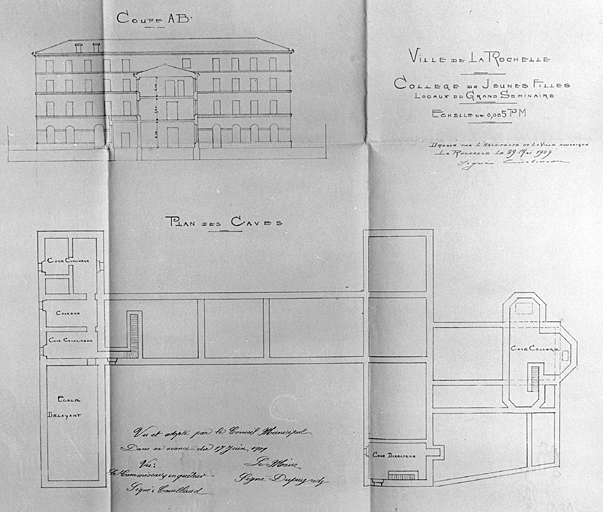 COUPE AB.
VILLE DE LA ROCHELLE
COLLEGE DE JEUNES FILLES
LOCAUX DU GRAND SEMINAIRE
ECHELLE DE 0,005 P M
DRESSÉ PAR L'ARCHITECTE DE LA VILLE SOUSSIGNÉ
LA ROCHELLE LE 29 MAI 1909
Signé
PLAN DES CAVES
CAVE
CHARBON
CAVE
ECOLE
DELAYANT
CAVE COLLEGE
CAVE DIRECTRICE
Vu et adopté par le Conseil Municipal
Dans sa séance du 17 Juin 1909
Vu:
Le Commissaire enquêteur
Signé:
Le Maire
Signé